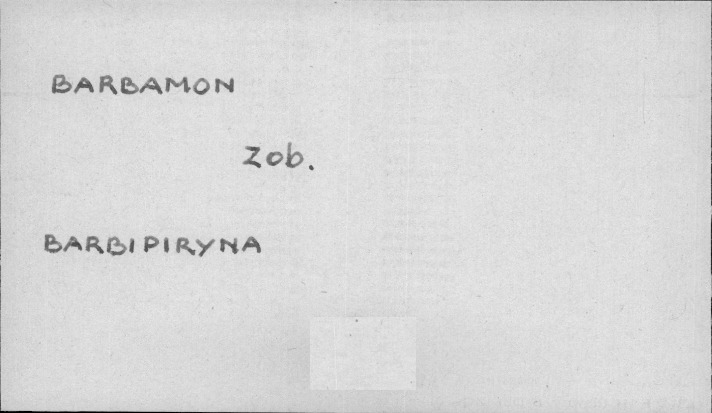 BARBAMON
Zob.
BARBIPIRYNA